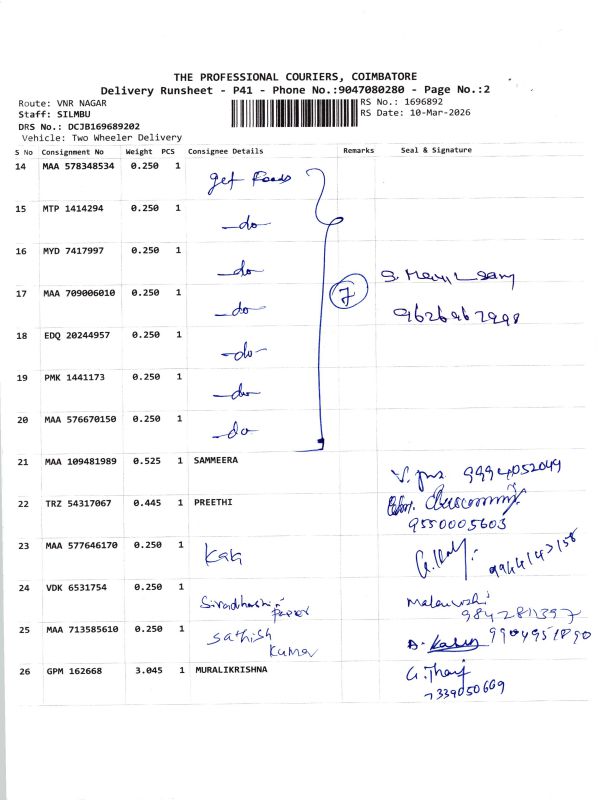 THE PROFESSIONAL COURIERS, COIMBATORE
Delivery Runsheet - P41 - Phone No.:9047080280 - Page No.:2
Route: VNR NAGAR
RS No.: 1696892
Staff: SILMBU
RS Date: 10-Mar-2026
DRS No.: DCJB169689202
Vehicle: Two Wheeler Delivery
S No Consignment No Weight PCS Consignee Details Remarks Seal & Signature
14 MAA 578348534 0.250 1 get
15 MTP 1414294 0.250 1 -do-
16 MYD 7417997 0.250 1 -do-
17 MAA 709006010 0.250 1 -do- 7 S.
18 EDQ 20244957 0.250 1 -do-
19 PMK 1441173 0.250 1 -do-
20 MAA 576670150 0.250 1 -do-
21 MAA 109481989 0.525 1 SAMMEERA 9994052049
22 TRZ 54317067 0.445 1 PREETHI
9550005603
23 MAA 577646170 0.250 1
24 VDK 6531754 0.250 1
25 MAA 713585610 0.250 1 Sathish
Kumar
26 GPM 162668 3.045 1 MURALIKRISHNA
7339050669